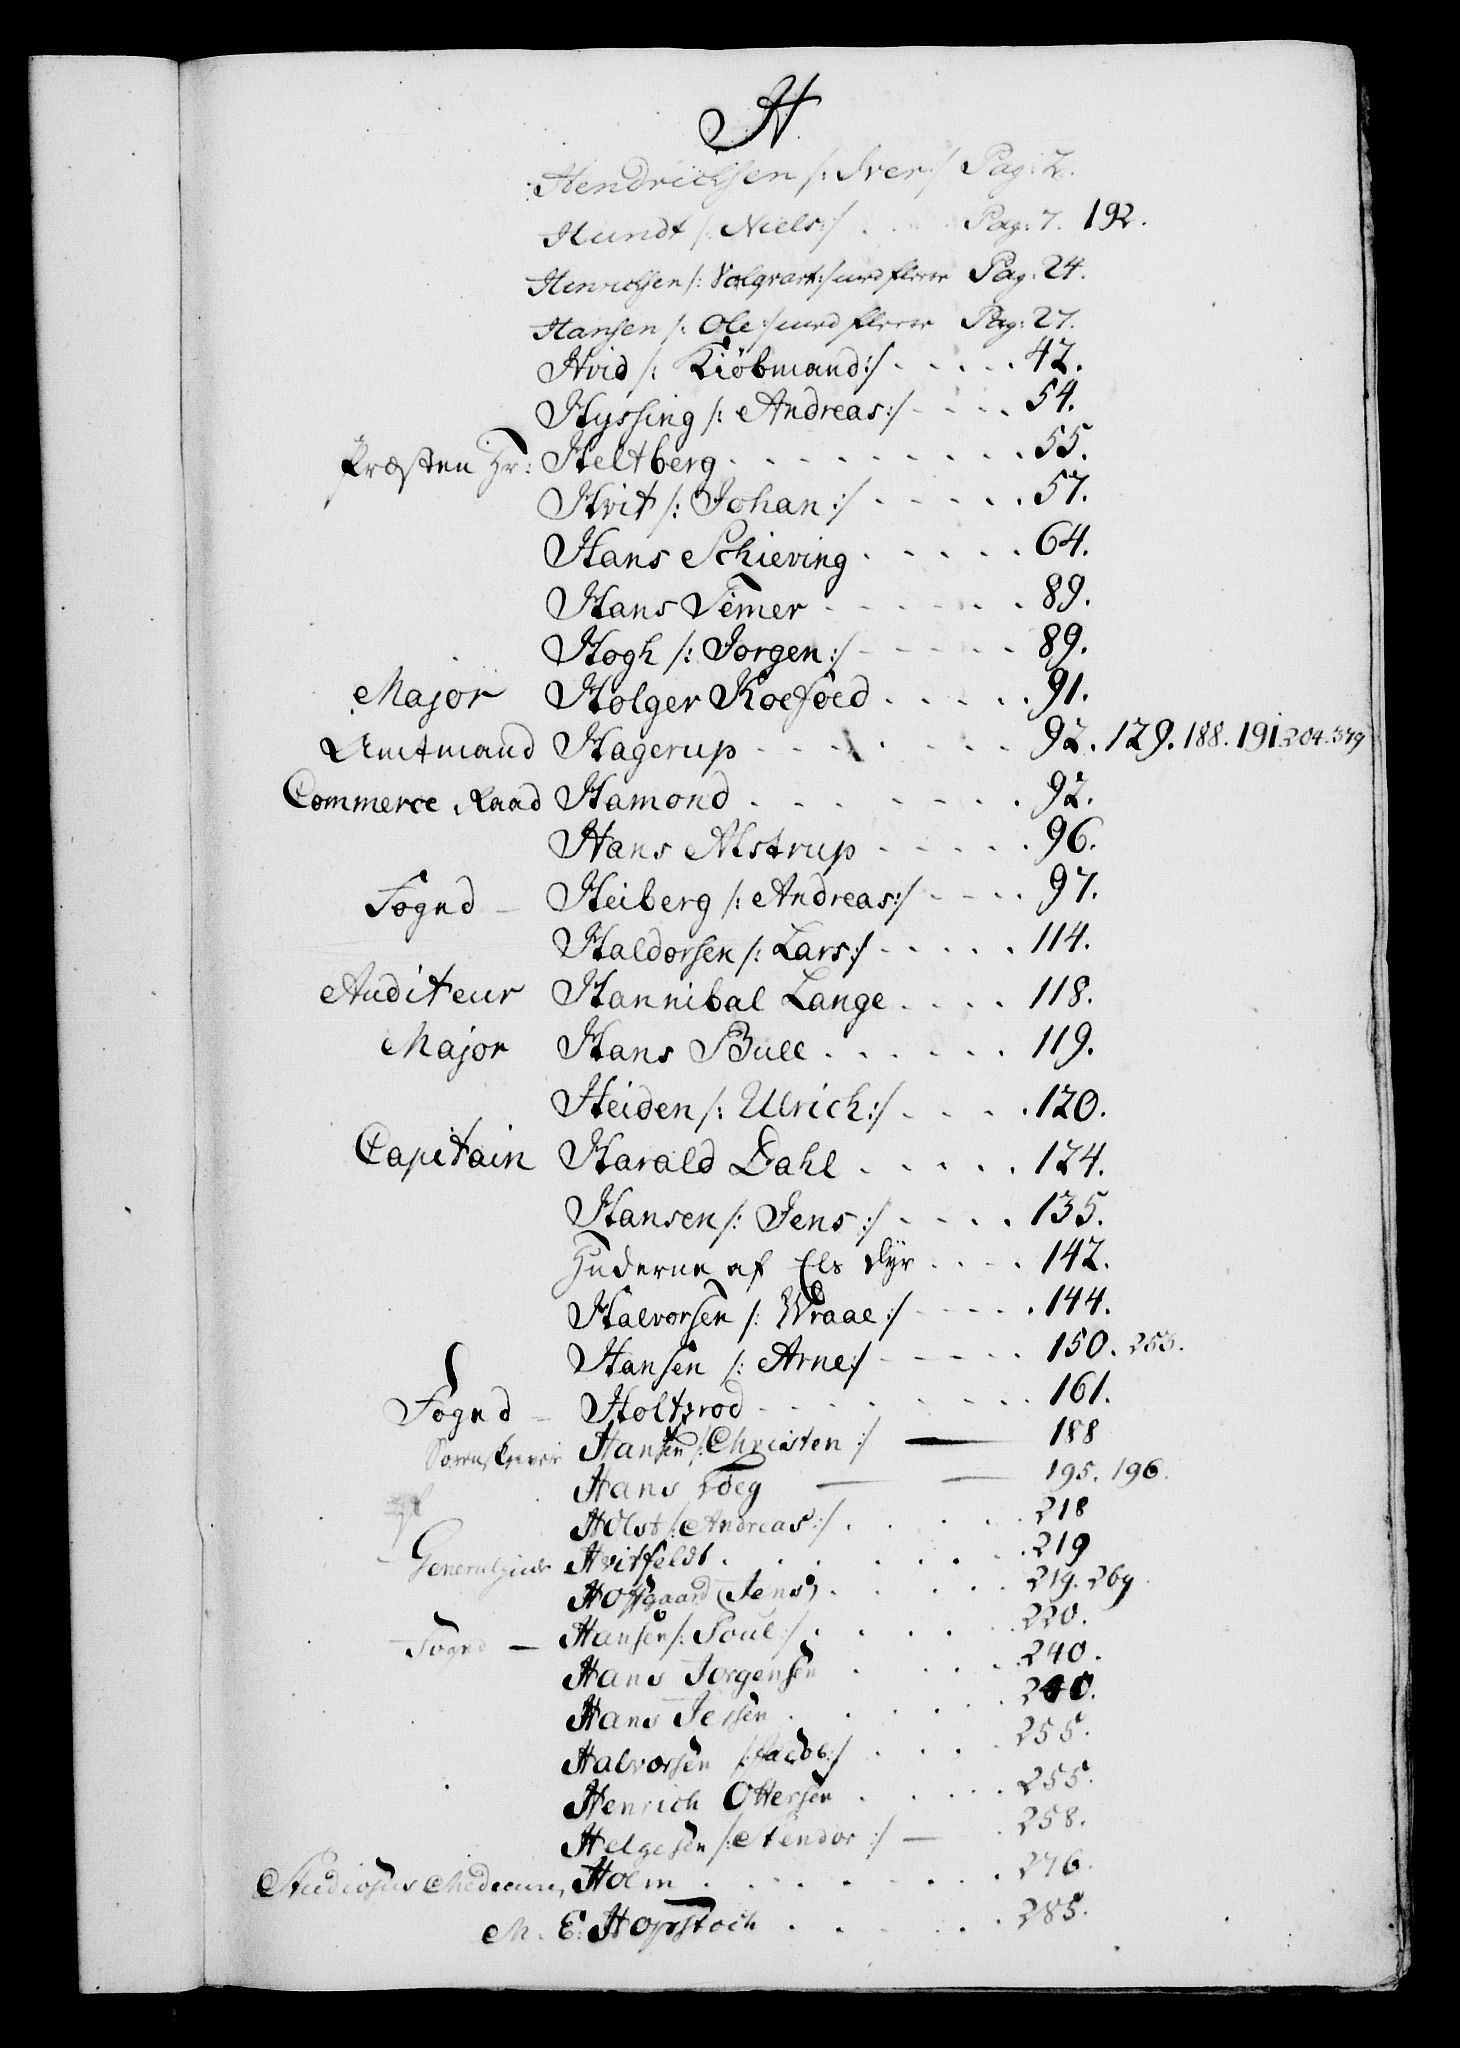 H
Hendrichsen /: Iver :/ Pag: 2.
Hundt /: Niels :/ . . . Pag: 7. 192.
Henrichsen /: Volqvart :/ med fleere Pag: 24.
Hansen /: Ole :/ med fleere Pag: 27.
Hvid /: Kiöbmand :/ . . . . . 42.
Hyssing /: Andreas :/ . . . . 54.
Præsten Hr: Heltberg . . . . . . . . . 55.
Hvit /: Johan :/ . . . . . 57.
Hans Schieving . . . . . 64.
Hans Temer . . . . . . 89.
Hogh /: Jorgen :/ . . . . . 89.
Major Holger Koefoed . . . . . 91.
Amtmand Hagerup . . . . . . . 92. 129. 188. 191. 204. 379
Commerce Raad Hamond . . . . . . . . 92.
Hans Alstrup . . . . . 96.
Fogud - Heiberg /: Andreas :/ . . . . 97.
Haldorsen /: Lars :/ . . . . . 114.
Auditeur Hannibal Lange . . . . 118.
Major Hans Bull . . . . . . 119.
Heiden /: Ulrich :/ . . . . 120.
Capitain Harald Dahl . . . . . 124.
Hansen /: Jens :/ . . . . 135.
Huderne af Els dyr . . . . 142.
Halvorsen /: Wraal :/ . . . . . 144.
Hansen /: Arne :/ . . . . . 150. 253.
Fogud - Holtzrod . . . . . . . . 161.
Sorenskriver Hansen /: Christen :/ — 188
Hans Loeg — — 195. 196.
Holst /: Andreas :/ . . . . . 218
Hvitfeldt . . . . . . . 219
Hoffgaard (Jens) . . . . . 219. 269.
Fogud — Hansen /: Poul :/ . . . . . . 220.
Hans Jorgensen . . . . 240.
Hans Jessen . . . . . 240.
Halvorsen /: Jacob :/ . . . . 255.
Henrich Ottersen . . . . . 255.
Helgesen /: Stendor :/ — . 258.
Studiosus Holm . . . . . . . 276.
M. E. Hopstock . . . . . 285.